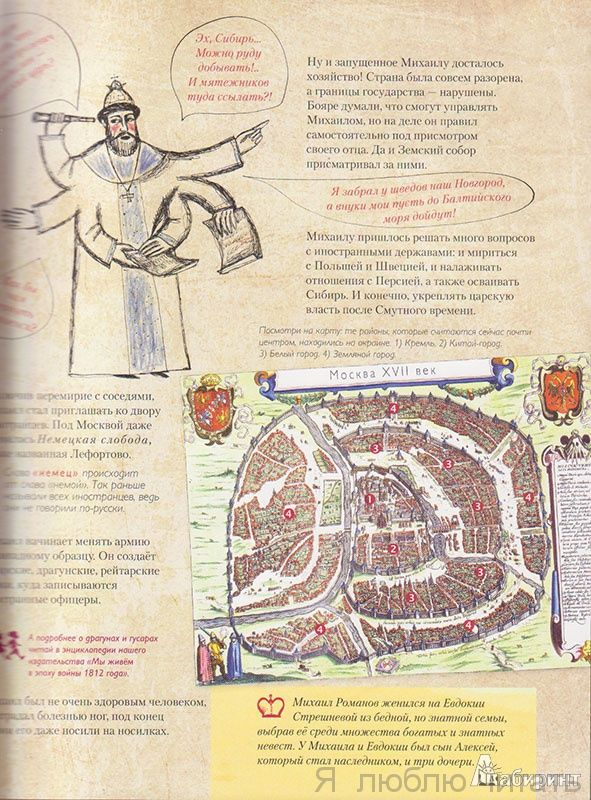 Эх, Сибирь...
Можно руду
добывать!..
И мятежников
туда ссылать?!
Ну и запущенное Михаилу досталось
хозяйство! Страна была совсем разорена,
а границы государства — нарушены.
Бояре думали, что смогут управлять
Михаилом, но на деле он правил
самостоятельно под присмотром
своего отца. Да и Земский собор
присматривал за ними.
Я забрал у шведов наш Новгород,
а внуки мои пусть до Балтийского
моря дойдут!
Михаилу пришлось решать много вопросов
с иностранными державами: и мириться
с Польшей и Швецией, и налаживать
отношения с Персией, а также осваивать
Сибирь. И конечно, укреплять царскую
власть после Смутного времени.
Посмотри на карту: те районы, которые считаются сейчас почти
центром, находились на окраине. 1) Кремль. 2) Китай-город.
3) Белый город. 4) Земляной город.
Москва XVII век
4
3
3
3
1
4
4
2
3
3
3
4
4
перемирие с соседями,
стал приглашать ко двору
Под Москвой даже
Немецкая слобода,
названная Лефортово.
«немец» происходит
слова «немой». Так раньше
всех иностранцев, ведь
не говорили по-русски.
начинает менять армию
образцу. Он создаёт
драгунские, рейтарские
куда записываются
офицеры.
А подробнее о драгунах и гусарах
читай в энциклопедии нашего
издательства «Мы живём
в эпоху войны 1812 года».
был не очень здоровым человеком,
болезнью ног, под конец
его даже носили на носилках.
Михаил Романов женился на Евдокии
Стрешневой из бедной, но знатной семьи,
выбрав её среди множества богатых и знатных
невест. У Михаила и Евдокии был сын Алексей,
который стал наследником, и три дочери.
Лабиринт
Я люблю читать